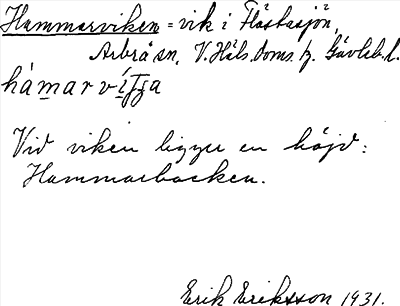 Hammarviken = vik i Flästasjön,
Arbrå sn, V. Häls. Doms. h. Gävleb. l.
Vid viken ligger en höjd:
Hammarbacken.
Erik Eriksson 1931.